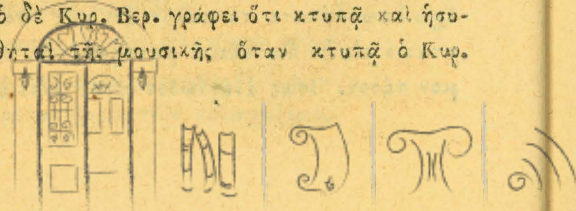 ὁ δὲ Κυρ. Βερ. γράφει ὅτι κτυπᾷ καὶ ἡσυ-
θηταὶ τῆς μουσικῆς ὅταν κτυπᾷ ὁ Κυρ.